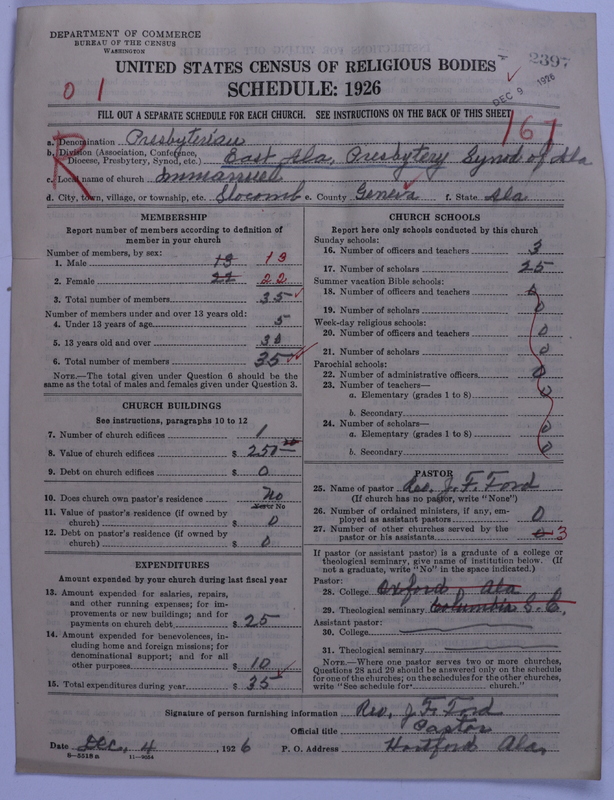 DEPARTMENT OF COMMERCE
BUREAU OF THE CENSUS
WASHINGTON
UNITED STATES CENSUS OF RELIGIOUS BODIES
2397
SCHEDULE: 1926
DEC 9 1926
01
FILL OUT A SEPARATE SCHEDULE FOR EACH CHURCH. SEE INSTRUCTIONS ON THE BACK OF THIS SHEET
161
R
a. Denomination Presbyterian
b. Division (Association, Conference, Diocese, Presbytery, Synod, etc.) East Ala. Presbytery Synod of Ala
c. Local name of church Immanuel
d. City, town, village, or township, etc. Slocomb e. County Geneva f. State Ala
MEMBERSHIP
Report number of members according to definition of
member in your church
Number of members, by sex:
1. Male 13 13
2. Female 22 22
3. Total number of members 35
Number of members under and over 13 years old:
4. Under 13 years of age 5
5. 13 years old and over 30
6. Total number of members 35
NOTE.—The total given under Question 6 should be the
same as the total of males and females given under Question 3.
CHURCH BUILDINGS
See instructions, paragraphs 10 to 12
7. Number of church edifices 1
8. Value of church edifices $ 250
9. Debt on church edifices $ 0
10. Does church own pastor's residence No
Yes or No
11. Value of pastor's residence (if owned by
church) $ 0
12. Debt on pastor's residence (if owned by
church) $ 0
EXPENDITURES
Amount expended by your church during last fiscal year
13. Amount expended for salaries, repairs,
and other running expenses; for im-
provements or new buildings; and for
payments on church debt $ 25
14. Amount expended for benevolences, in-
cluding home and foreign missions; for
denominational support; and for all
other purposes $ 10
15. Total expenditures during year $ 35
CHURCH SCHOOLS
Report here only schools conducted by this church
Sunday schools:
16. Number of officers and teachers 3
17. Number of scholars 25
Summer vacation Bible schools:
18. Number of officers and teachers 0
19. Number of scholars 0
Week-day religious schools:
20. Number of officers and teachers 0
21. Number of scholars 0
Parochial schools:
22. Number of administrative officers 0
23. Number of teachers—
a. Elementary (grades 1 to 8) 0
b. Secondary
24. Number of scholars—
a. Elementary (grades 1 to 8) 0
b. Secondary 0
PASTOR
25. Name of pastor Rev. J. F. Ford
(If church has no pastor, write "None")
26. Number of ordained ministers, if any, em-
ployed as assistant pastors 0
27. Number of other churches served by the
pastor or his assistants 3
If pastor (or assistant pastor) is a graduate of a college or
theological seminary, give name of institution below. (If
not a graduate, write "No" in the space indicated.)
Pastor:
28. College Oxford Ala
29. Theological seminary Columbia S. C.
Assistant pastor:
30. College
31. Theological seminary
NOTE.—Where one pastor serves two or more churches,
Questions 28 and 29 should be answered only on the schedule
for one of the churches; on the schedules for the other churches,
write "See schedule for church."
Signature of person furnishing information Rev. J. F. Ford
Official title Pastor
Date Dec. 4, 1926 P. O. Address Hartford Ala.
8-5518a 11-9054